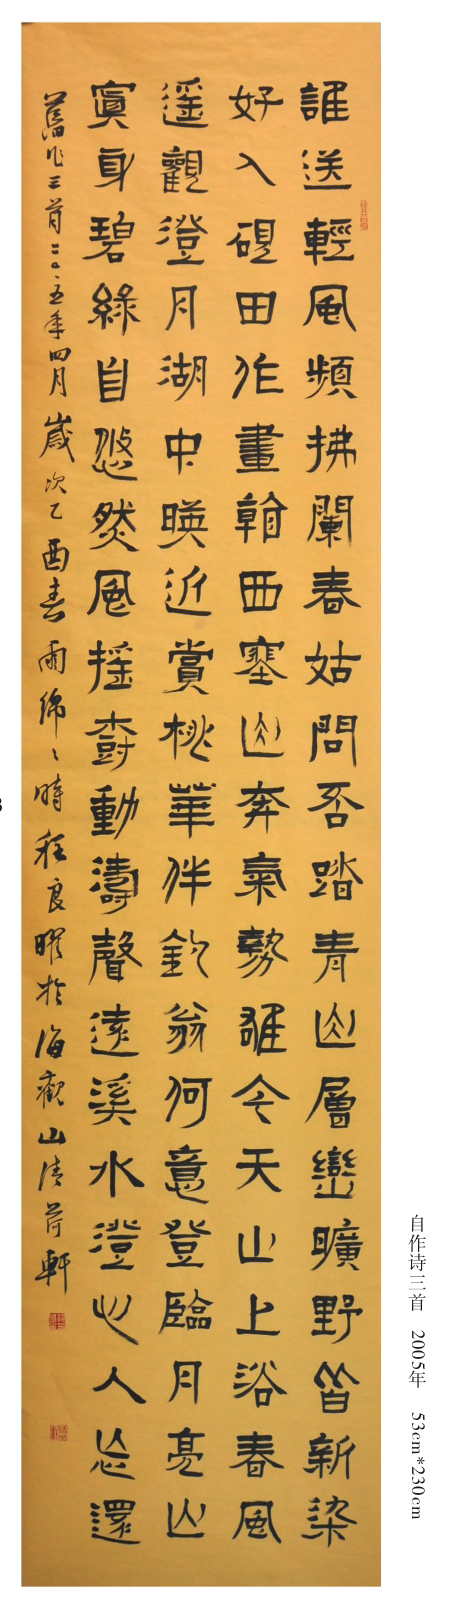 誰送輕風頻拂闌春姑問否踏青山層巒曠野皆新染
好入硯田作畫翰西塞山奔氣勢雄今天山上浴春風
遥觀澄月湖中暎近賞桃華伴釣翁何意登臨月亮山
寘身碧綠自悠然風摇樹動濤聲遠溪水澄心人忘還
舊作三首二〇〇五年四月歲次乙酉春雨綿々時程良曜於海觀山清荷軒
自作诗三首 2005年 53cm*230cm